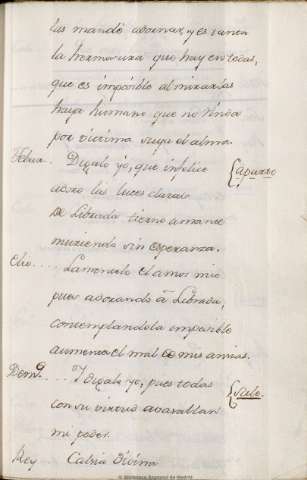 las mandó adornar, y es tanta
la hermosura que hay en todas,
que es imposible al mirarlas
haya humano que no rinda
por victima suya el alma.
Febux. Digalo yo, que infelice (aparte
adoro las luces claras
de Librada tierno amante
muriendo sin esperanza.
Elio.... Lamentelo el amor mio
pues adorando á Librada,
contemplandola imposible
aumenta el mal de mis ansias.
Demº... Y digalo yo, pues todas (Sale.
con su virtud avasallan
mi poder.
Rey Catsia Divina
© Biblioteca Regional de Madrid